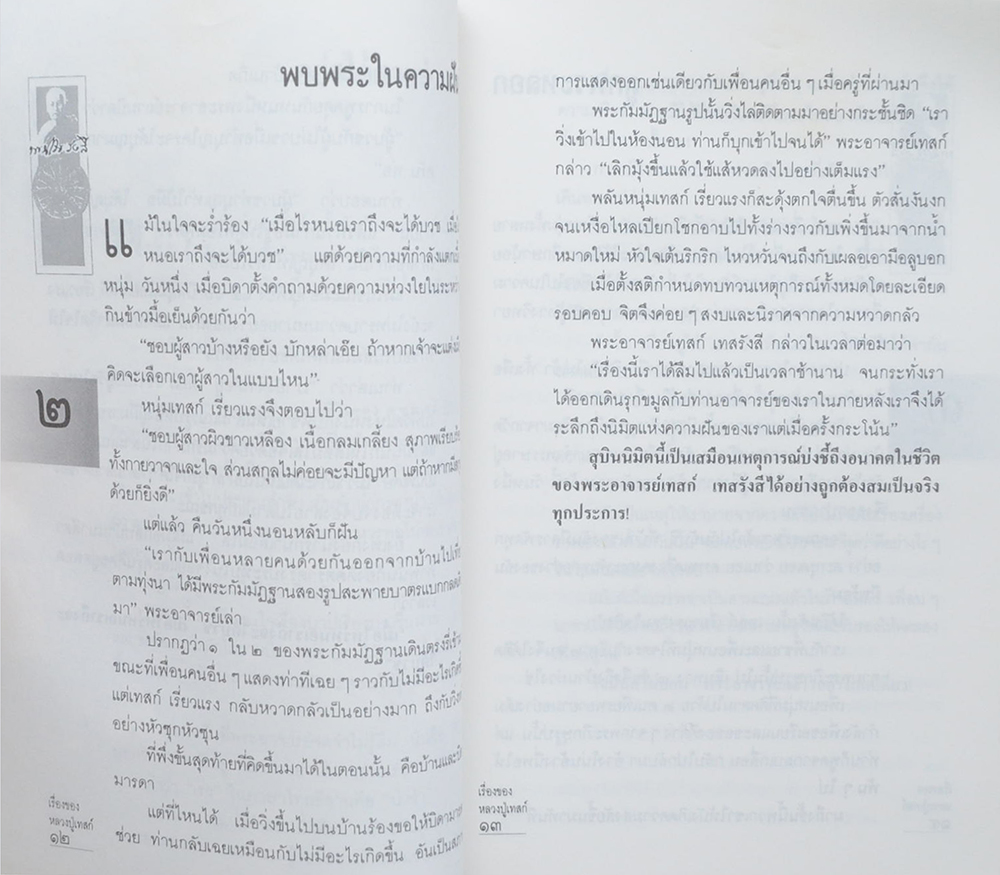 พบพระในความฝัน
แ
ม้ในใจจะร่ำร้อง “เมื่อไรหนอเราถึงจะได้บวช เมื่อ
หนอเราถึงจะได้บวช” แต่ด้วยความที่กำลังแตก
หนุ่ม วันหนึ่ง เมื่อบิดาตั้งคำถามด้วยความห่วงใยในระหว่
กินข้าวมื้อเย็นด้วยกันว่า
“ชอบผู้สาวบ้างหรือยัง บักหล่าเอ๊ย ถ้าหากเจ้าจะแต่ง
คิดจะเลือกเอาผู้สาวในแบบไหน”
๒
หนุ่มเทสก์ เรี่ยวแรงจึงตอบไปว่า
“ชอบผู้สาวผิวขาวเหลือง เนื้อกลมเกลี้ยง สุภาพเรียบ
ทั้งกายวาจาและใจ ส่วนสกุลไม่ค่อยจะมีปัญหา แต่ถ้าหากมี
ด้วยก็ยิ่งดี”
แต่แล้ว คืนวันหนึ่งนอนหลับก็ฝัน
“เรากับเพื่อนหลายคนด้วยกันออกจากบ้านไปเที่
ตามทุ่งนา ได้มีพระกัมมัฏฐานสองรูปสะพายบาตรแบกกลด
มา” พระอาจารย์เล่า
ปรากฏว่า ๑ ใน ๒ ของพระกัมมัฏฐานเดินตรงรี่เข้า
ขณะที่เพื่อนคนอื่น ๆ แสดงท่าทีเฉย ๆ ราวกับไม่มีอะไรเกิดขึ้
แต่เทสก์ เรี่ยวแรง กลับหวาดกลัวเป็นอย่างมาก ถึงกับวิ่ง
อย่างหัวซุกหัวซุน
ที่พึ่งขั้นสุดท้ายที่คิดขึ้นมาได้ในตอนนั้น คือบ้านและ
มารดา
แต่ที่ไหนได้ เมื่อวิ่งขึ้นไปบนบ้านร้องขอให้บิดามาร
ช่วย ท่านกลับเฉยเหมือนกับไม่มีอะไรเกิดขึ้น อันเป็น
เรื่องของ
หลวงปู่เทสก์
๑๒
การแสดงออกเช่นเดียวกับเพื่อนคนอื่น ๆ เมื่อครู่ที่ผ่านมา
พระกัมมัฏฐานรูปนั้นวิ่งไล่ติดตามมาอย่างกระชั้นชิด “เรา
วิ่งเข้าไปในห้องนอน ท่านก็บุกเข้าไปจนได้” พระอาจารย์เทสก์
กล่าว “เลิกมุ้งขึ้นแล้วใช้แส้หวดลงไปอย่างเต็มแรง”
พลันหนุ่มเทสก์ เรี่ยวแรงก็สะดุ้งตกใจตื่นขึ้น ตัวสั่นงันงก
จนเหงื่อไหลเปียกโชกอาบไปทั้งร่างราวกับเพิ่งขึ้นมาจากน้ำ
หมาดใหม่ หัวใจเต้นริกริก ไหวหวั่นจนถึงกับเผลอเอามือลูบอก
เมื่อตั้งสติกำหนดทบทวนเหตุการณ์ทั้งหมดโดยละเอียด
รอบคอบ จิตจึงค่อย ๆ สงบและนิราศจากความหวาดกลัว
พระอาจารย์เทสก์ เทสรังสี กล่าวในเวลาต่อมาว่า
“เรื่องนี้เราได้ลืมไปแล้วเป็นเวลาช้านาน จนกระทั่งเรา
ได้ออกเดินรุกขมูลกับท่านอาจารย์ของเราในภายหลังเราจึงได้
ระลึกถึงนิมิตแห่งความฝันของเราแต่เมื่อครั้งกระโน้น”
สุบินนิมิตนี้เป็นเสมือนเหตุการณ์บ่งชี้ถึงอนาคตในชีวิต
ของพระอาจารย์เทสก์ เทสรังสีได้อย่างถูกต้องสมเป็นจริง
ทุกประการ!
เรื่องของ
หลวงปู่เทสก์
๑๓